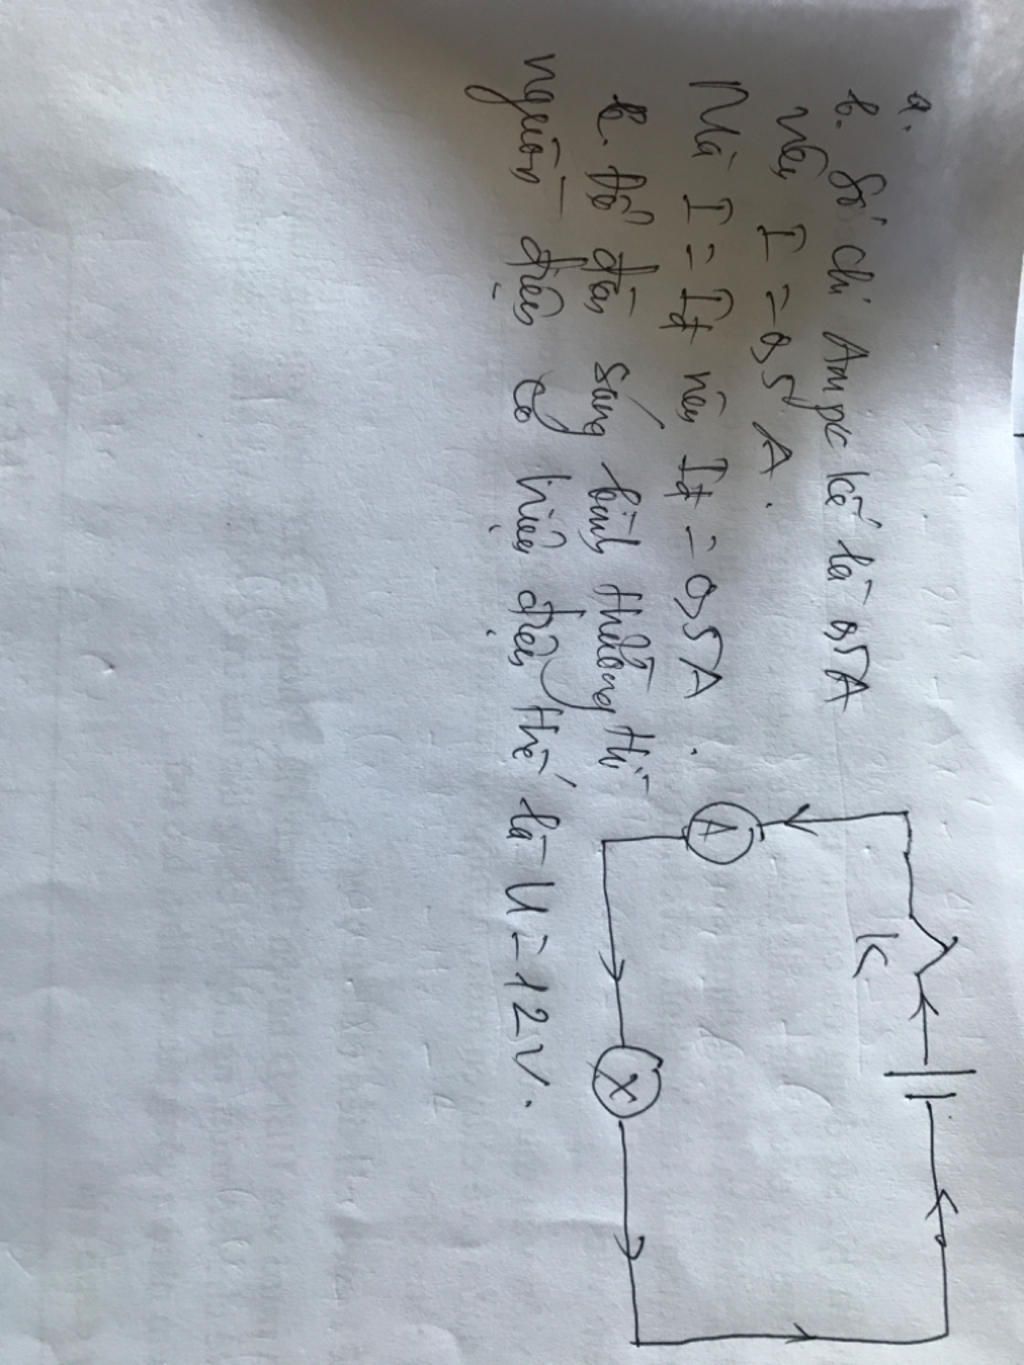 a.
b. Số chỉ Ampe kế là 0,5A
nên I = 0,5 A.
Mà I = Iđ nên Iđ = 0,5A.
c. Để đèn sáng bình thường thì
nguồn điện có hiệu điện thế là U = 12V.
K
A
X